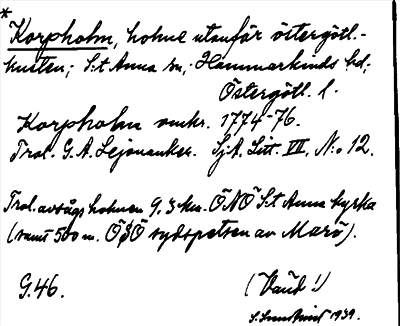 *
Korpholm, holme utanför östergötl.-
kusten; S:t Anna sn, Hammarkinds hd;
Östergötl. l.
Korpholm omkr. 1774-76.
Trol. G. A. Lejonanker. Sj.A. Litt. VII, N:o 12.
Trol. avsågs holmen 9,3 km. ÖNÖ S:t Anna kyrka
(samt 500 m. ÖSÖ sydspetsen av Marö).
G.46.
1939.